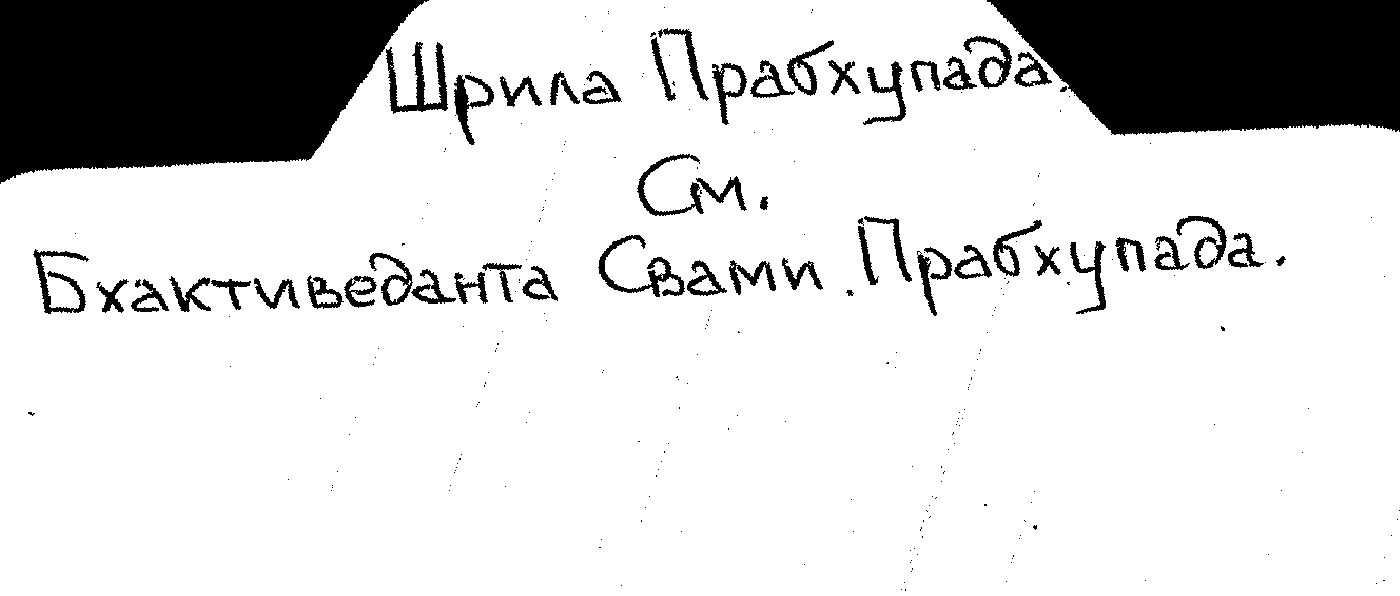 Шрила Прабхупада.
См.
Бхактиведанта Свами Прабхупада.